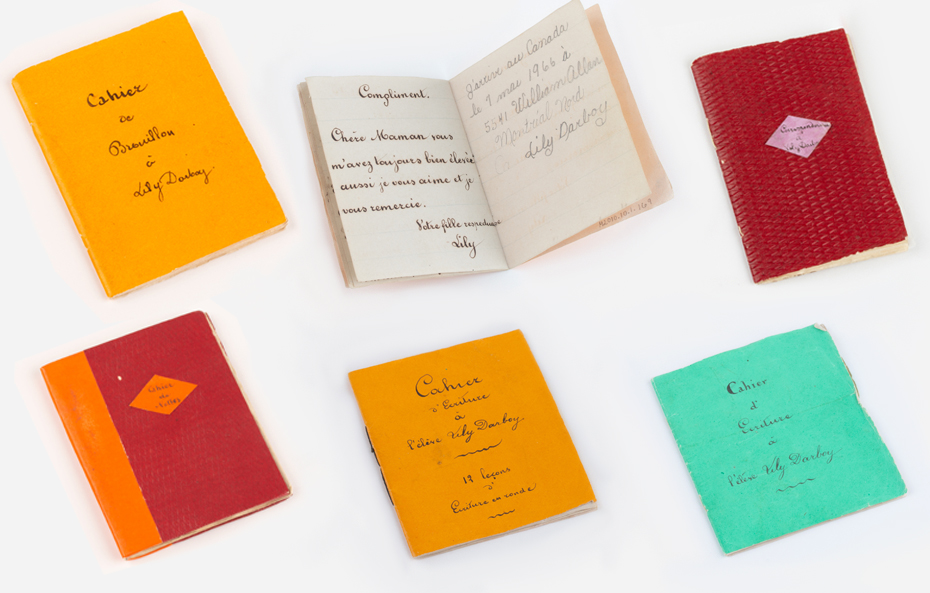 Cahier
de
Brouillon
à
Lily Darboy
Compliment.
Chère Maman vous
m'avez toujours bien élevée
aussi je vous aime et je
vous remercie.
Votre fille respectueuse
Lily
J'arrive au Canada
le 9 mai 1966 à
5541 William Allan
Montréal Nord
Lily Darboy
Correspondance
à
Cahier
de
Cahier
d'Ecriture
à
l'élève Lily Darboy
12 leçons
d'
Ecriture en ronde
Cahier
d'
Ecriture
à
l'élève Lily Darboy